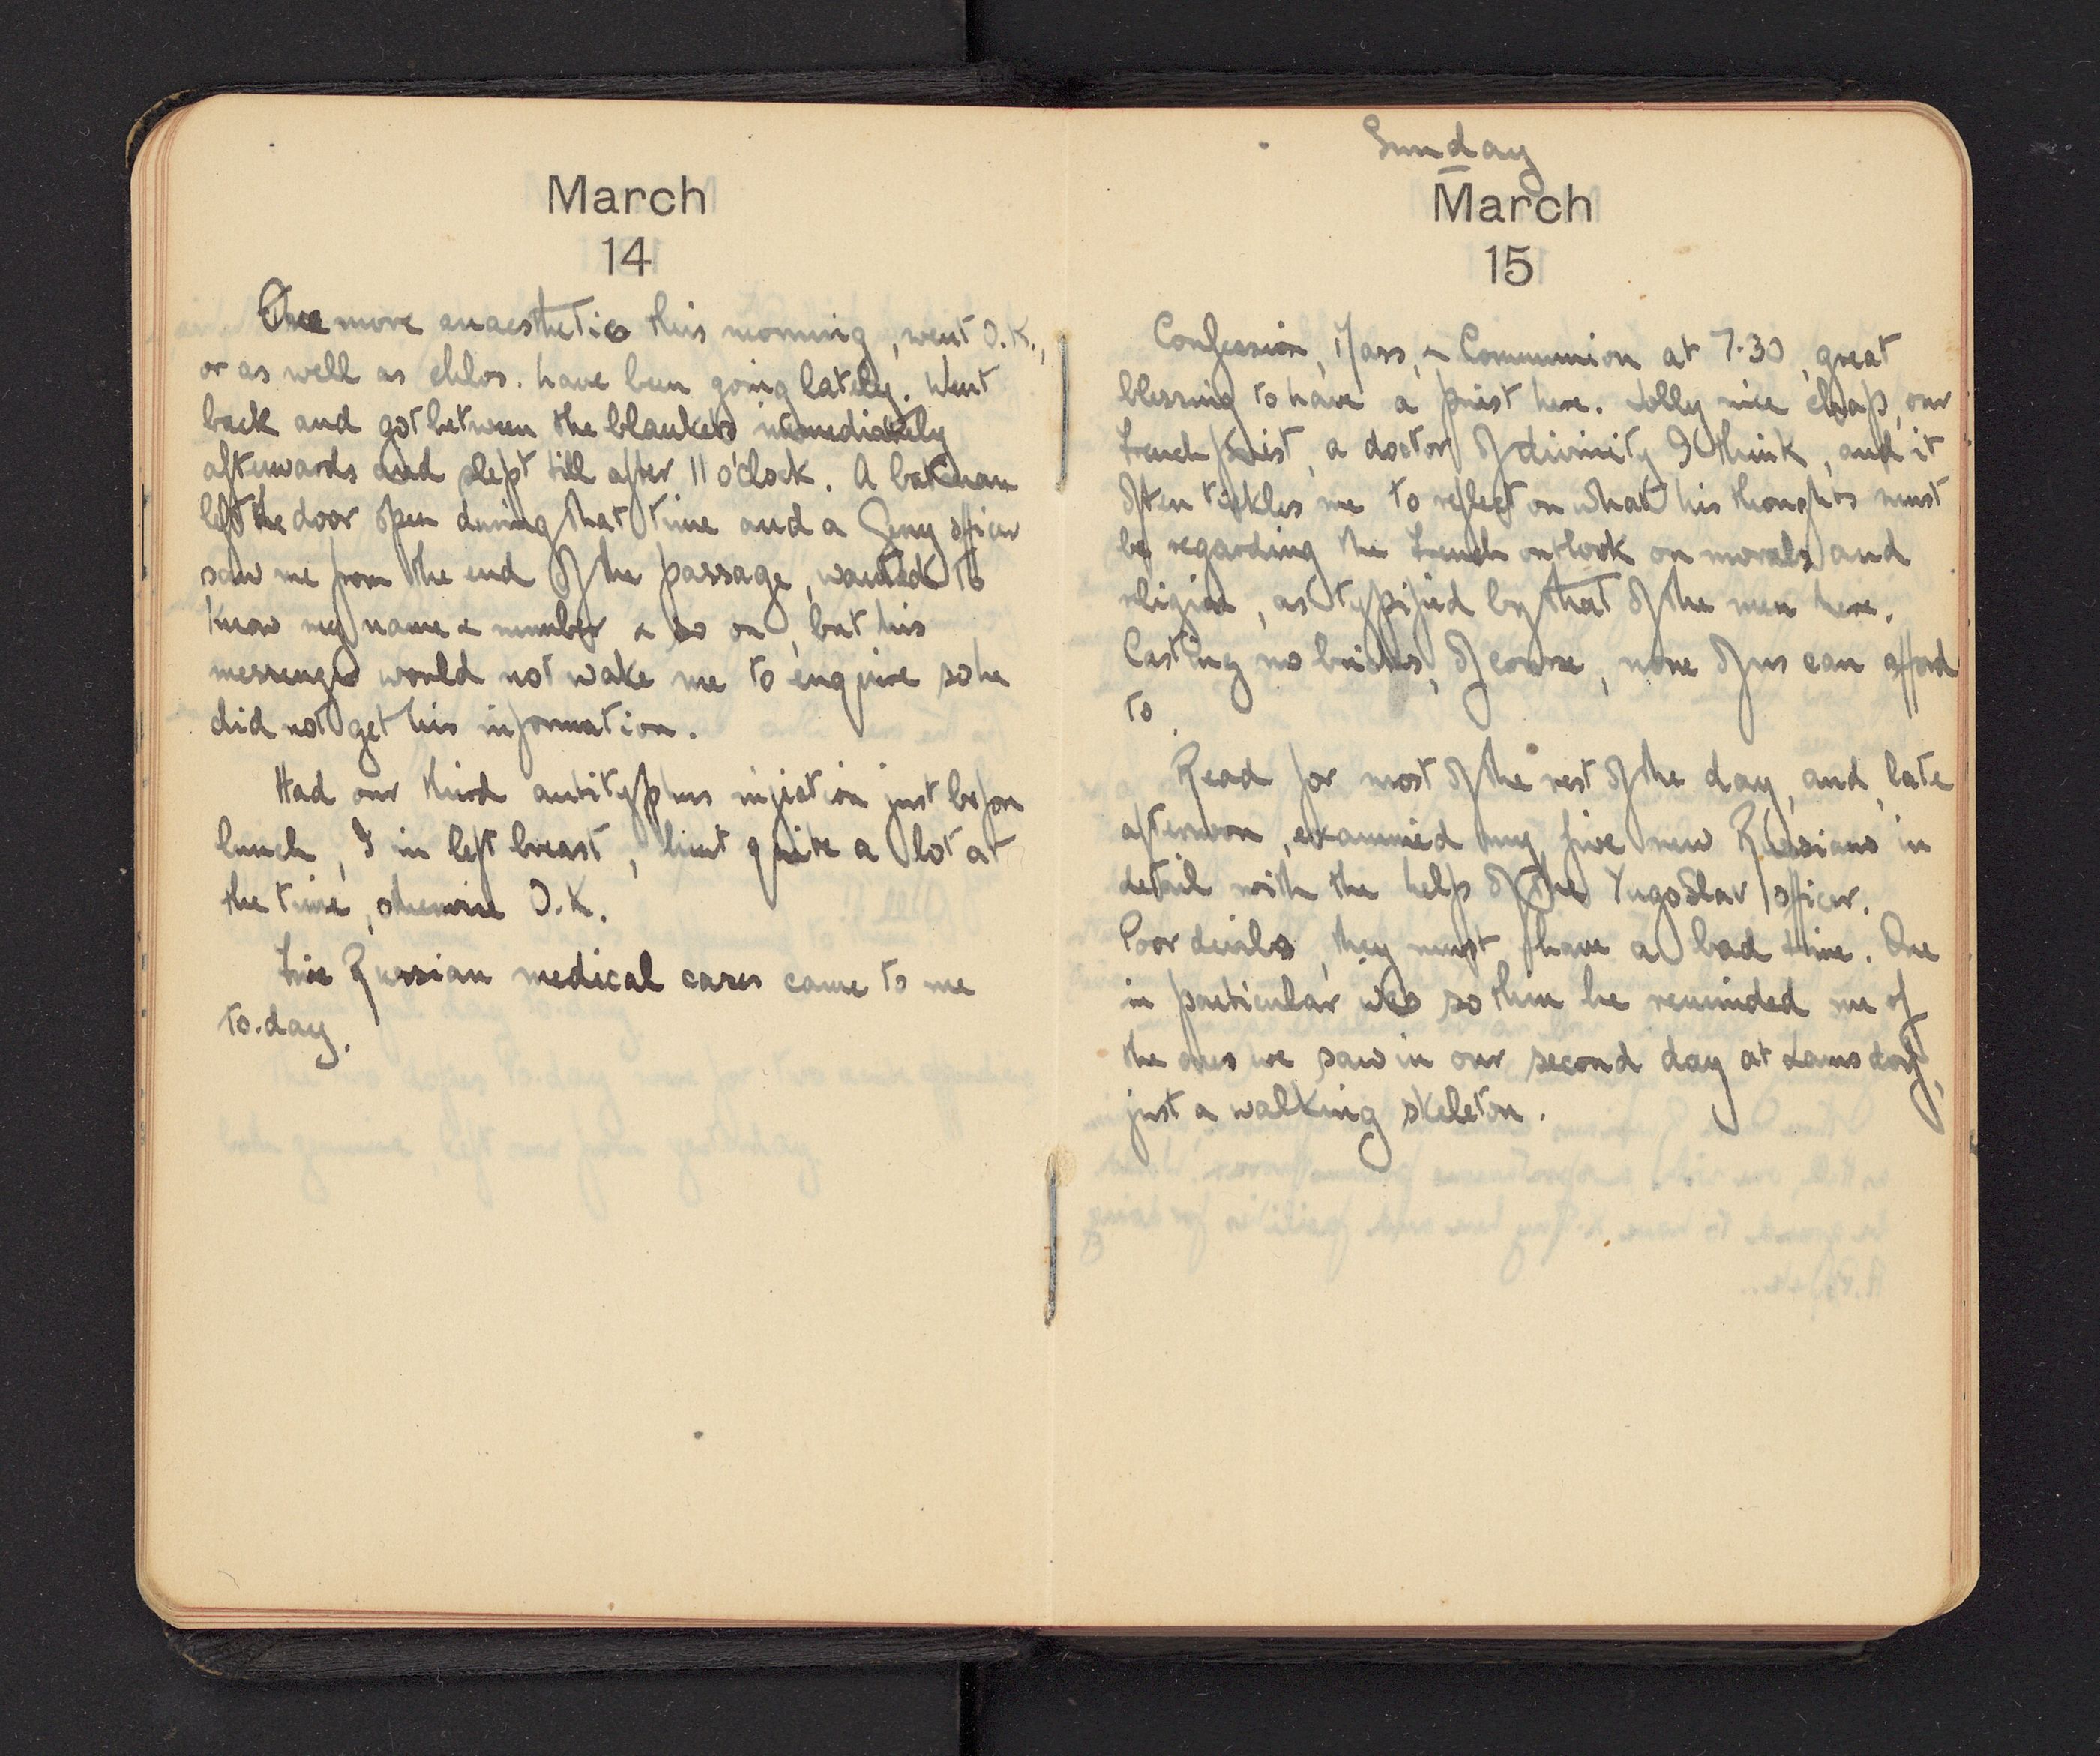 March
14
One more anaesthetic this morning, went O.K.,
or as well as chlor. have been going lately. Went
back and got between the blankets immediately
afterwards and slept till after 11 o'clock. A batman
left the door open during that time and a Gerry officer
saw me from the end of the passage, wanted to
know my name & number & so on, but his
messenger would not wake me to enquire so he
did not get his information.
Had our third antityphus injection just before
lunch, I in left breast, hurt quite a lot at
the time, otherwise O.K.
Five Russian medical cases came to me
to.day.
Sunday
March
15
Confession, Mass, & Communion at 7.30, great
blessing to have a priest here. Jolly nice chap, our
French priest, a doctor of divinity I think, and it
often tickles me to reflect on what his thoughts must
be regarding the French outlook on morals and
religion, as typified by that of the men here.
Casting no bricks, of course, none of us can afford
to.
Read for most of the rest of the day, and, late
afternoon, examined my five new Russians in
detail with the help of the YugoSlav officer.
Poor devils, they must have a bad time. One
in particular was so thin he reminded me of
the ones we saw in our second day at Lamsdorf,
just a walking skeleton.